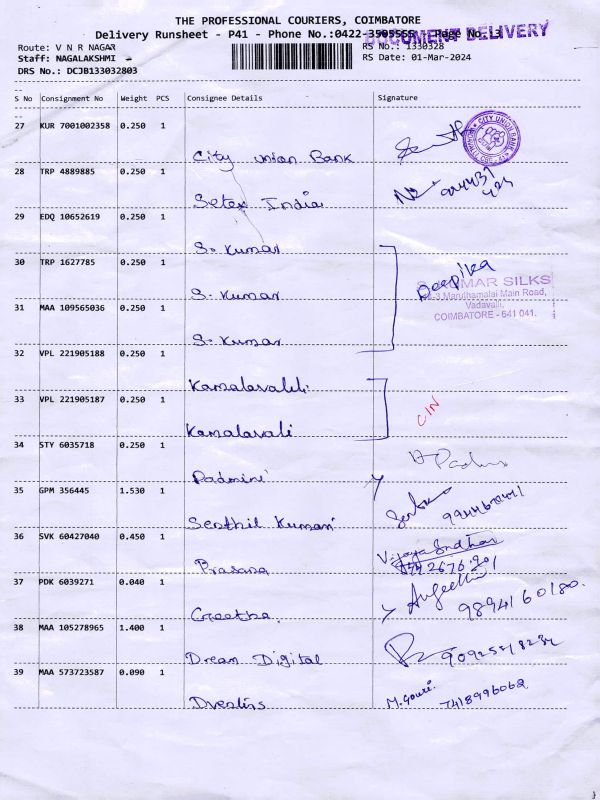 THE PROFESSIONAL COURIERS, COIMBATORE
Delivery Runsheet - P41 - Phone No.:0422-3505565 - Page No.:3
DOCUMENT DELIVERY
Route: V N R NAGAR
RS No.: 1330328
Staff: NAGALAKSHMI
RS Date: 01-Mar-2024
DRS No.: DCJB133032803
S No Consignment No Weight PCS Consignee Details Signature
27 KUR 7001002358 0.250 1
City Union Bank
CITY UNION BANK
28 TRP 4889885 0.250 1
Setex India
29 EDQ 10652619 0.250 1
S. Kumar
30 TRP 1627785 0.250 1
S. Kumar
Deepika
KUMAR SILKS
Maruthamalai Main Road,
Vadavalli,
COIMBATORE - 641 041.
31 MAA 109565036 0.250 1
S. Kumar
32 VPL 221905188 0.250 1
Kamalavalli
33 VPL 221905187 0.250 1
Kamalavali
C/N
34 STY 6035718 0.250 1
Padmini
35 GPM 356445 1.530 1
Senthil Kumar
36 SVK 60427040 0.450 1
Prasana
37 PDK 6039271 0.040 1
Geetha.
9894160180.
38 MAA 105278965 1.400 1
Dream Digital
39 MAA 573723587 0.090 1
M. Gouri.
7418996062